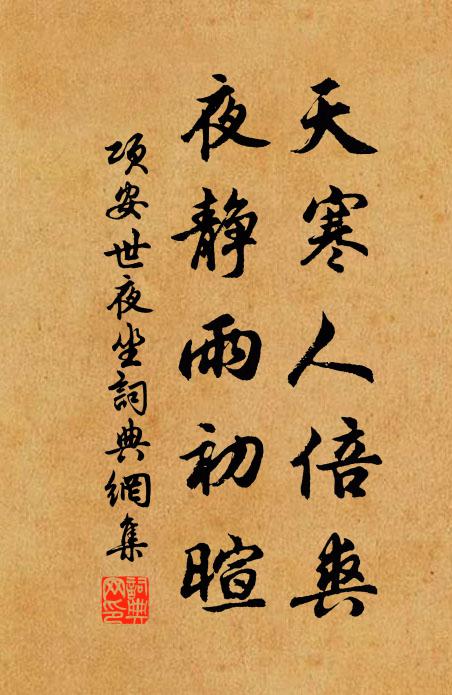 天寒人倍爽
夜静雨初暄
项安世夜坐詞典網集
詞典
网印